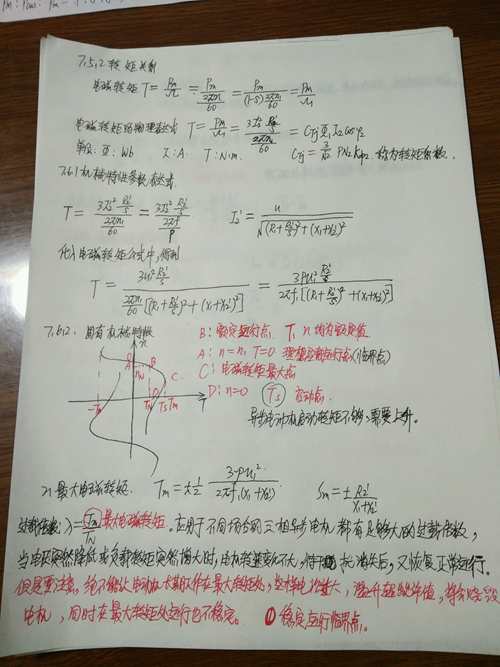 7.5.2 转矩关系
电磁转矩 T = Pm/Ω = Pm/(2πn/60) = Pm/((1-S)2πn₁/60) = Pm/Ω₁
电磁转矩的物理表达式 T = Pm/Ω₁ = 3I₂'² R₂'/S / (2πn₁/60) = CTj Φ₁ I₂ cosφ₂
单位: Φ: Wb I: A T: N·m CTj = PN₂Kp₂ 称为转矩系数.
7.6.1 机械特性参数表达式
T = 3I₂'² R₂'/S / (2πn₁/60) = 3I₂'² R₂'/S / (2πf/P) I₂' = u/√((R₁+R₂'/S)²+(X₁+X₂')²)
代入电磁转矩公式中, 得到
T = 3u₁² R₂'/S / (2πn₁/60 [(R₁+R₂'/S)²+(X₁+X₂')²]) = 3Pu₁² R₂'/S / (2πf₁[(R₁+R₂'/S)²+(X₁+X₂')²])
7.6.2. 固有机械特性
n
B: 额定运行点, T, n 均为额定值
A: n = n₁ T=0 理想空载运行点(临界点)
C: 电磁转矩最大点
D: n=0 Ts 启动点.
异步电动机启动转矩不够, 需要上升.
A B nN C D
-Tm TN Ts Tm T
2) 最大电磁转矩. Tm = ±1/2 3Pu₁²/(2πf₁(X₁+X₂')) Sm = ± R₂'/(X₁+X₂')
过载倍数: λ = Tm/TN 最大电磁转矩. 在用于不同场合的三相异步电机都有足够大的过载倍数,
当电压突然降低或负载转矩突然增大时, 电机转速变化不大, 待扰消失后, 又恢复正常运行.
但是要注意, 绝不能让电动机长期工作在最大转矩处, 这样电流过大, 温升超出允许值, 将会烧毁
电机, 同时在最大转矩处运行也不稳定. 稳定运行临界点.